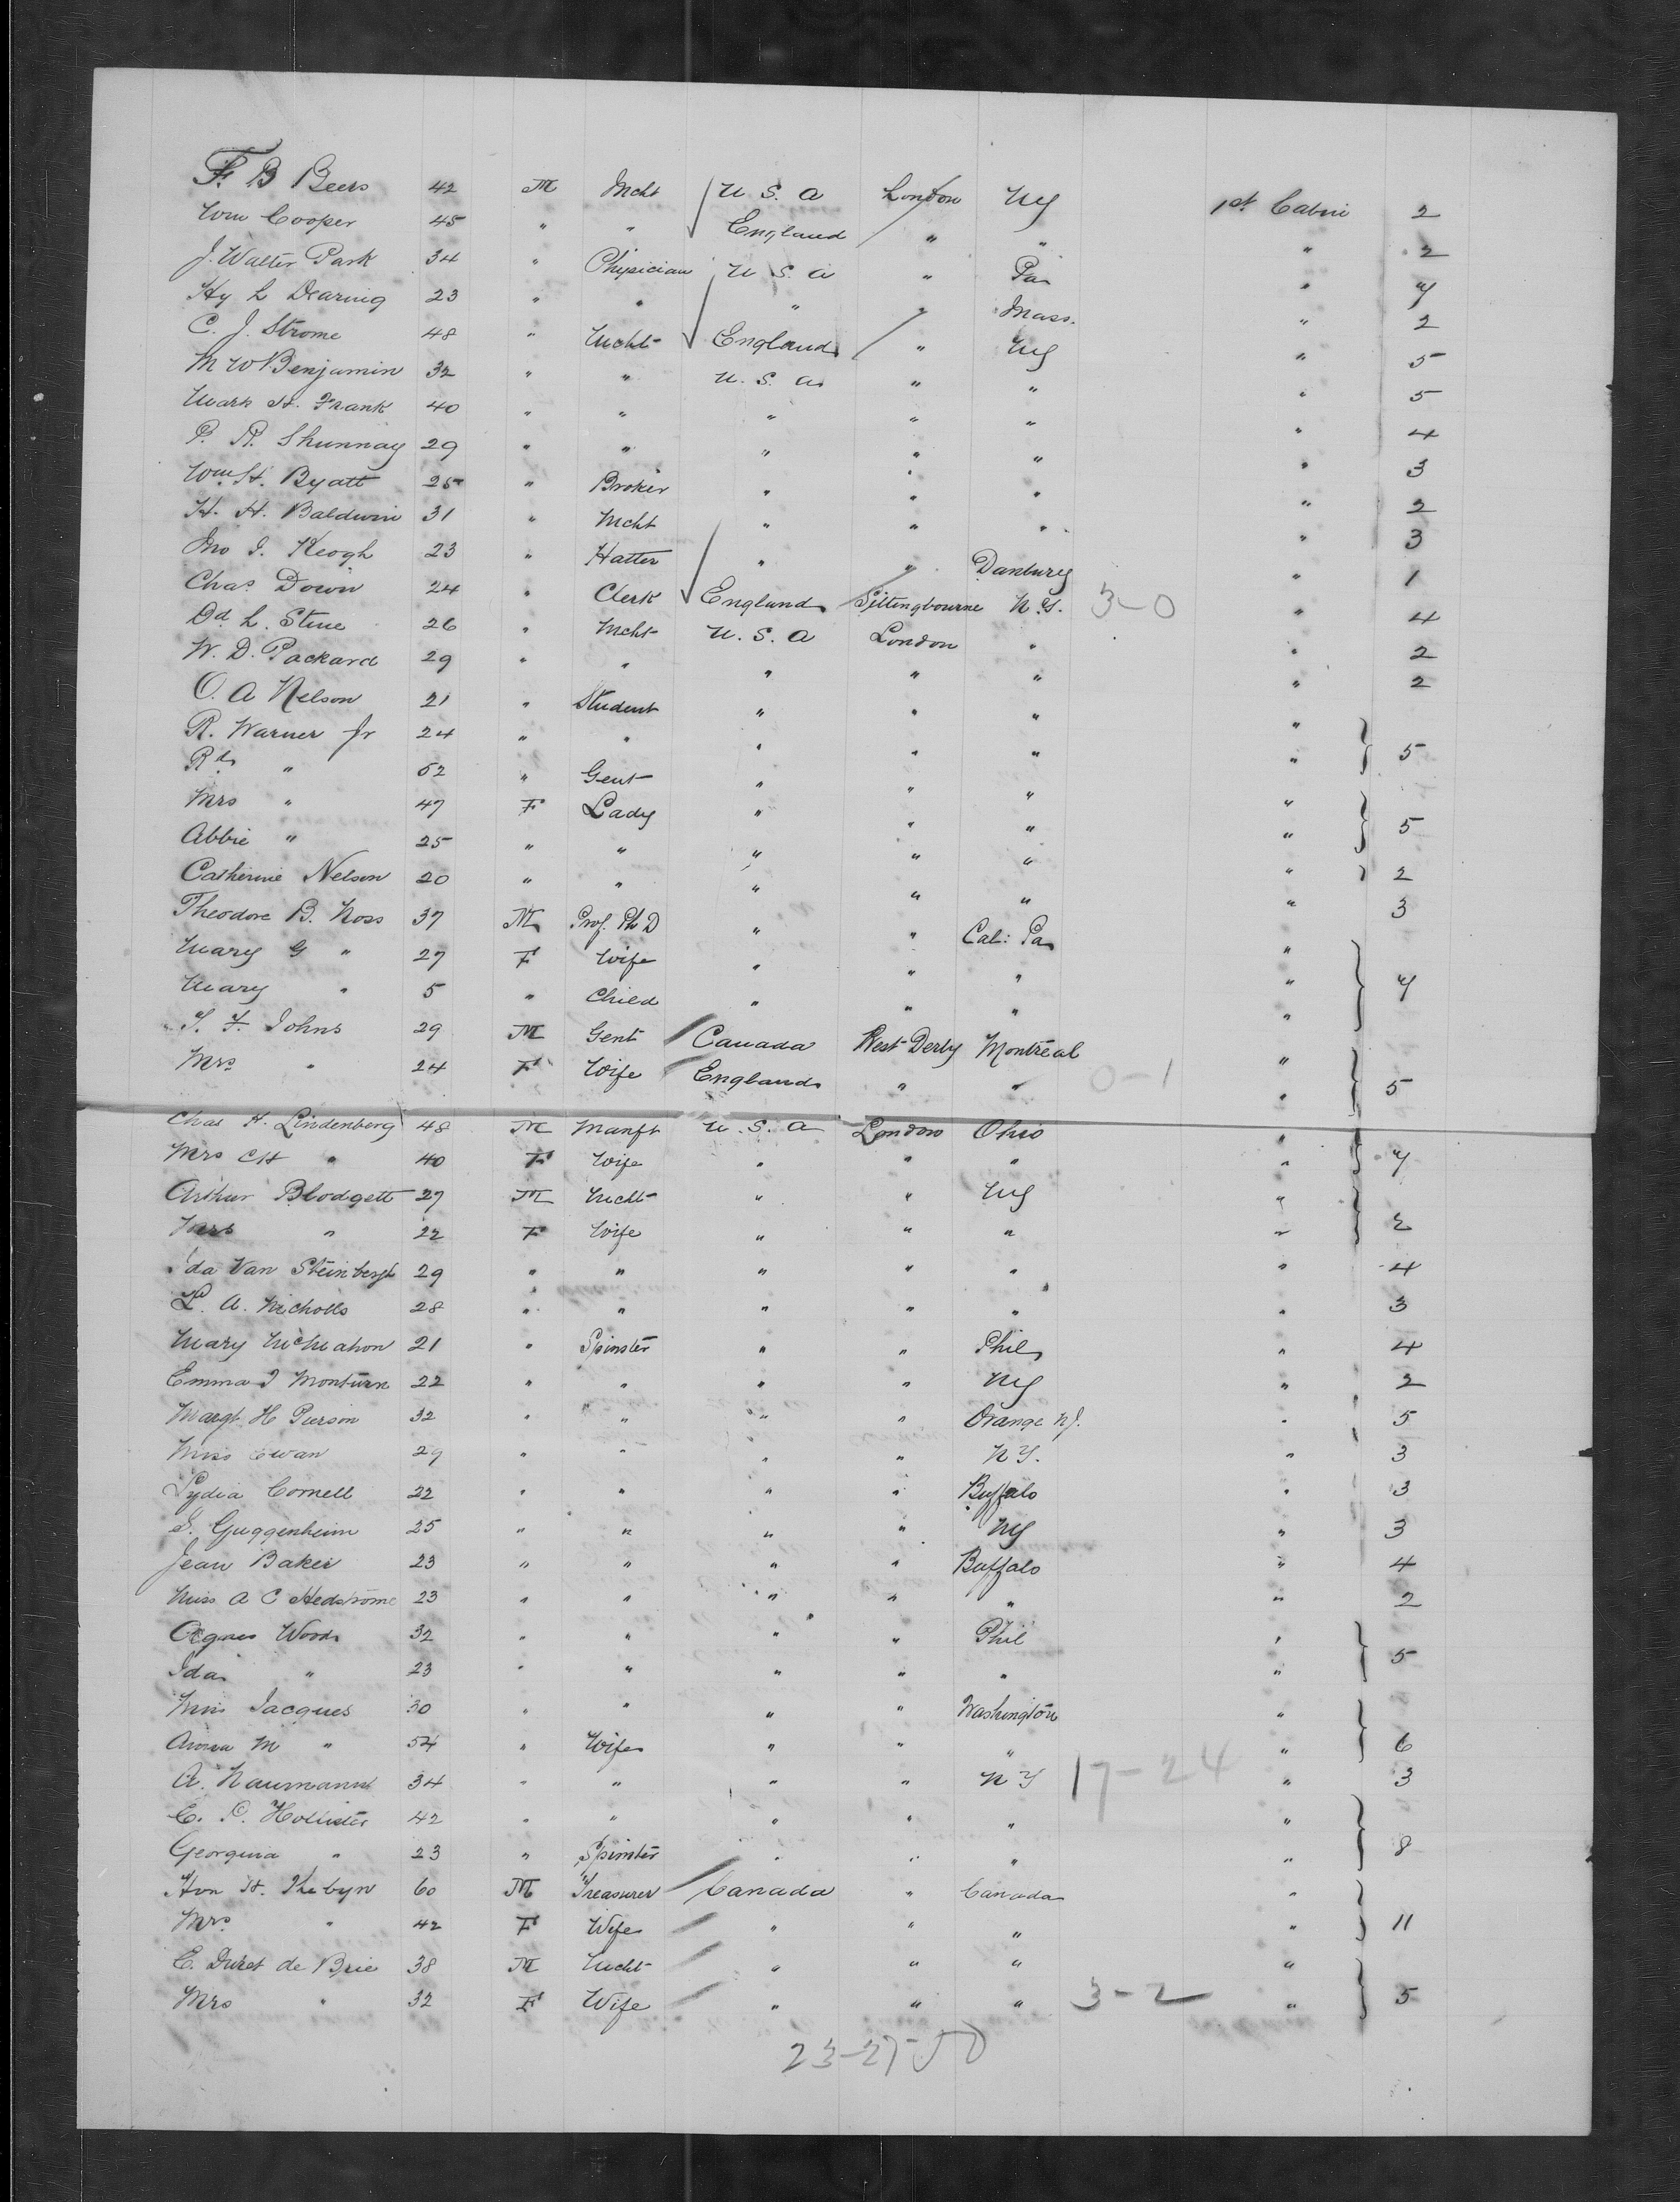 F. B Beers 42 M Mcht U. S. A London NY 1st Cabin 2
Wm Cooper 45 " " England " " " 2
J. Walter Park 34 " Physician U. S. A " Pa " 7
Hy L Dearing 23 " " " " Mass. " 2
C. J. Strome 48 " Mcht England " NY " 5
M W Benjamin 32 " " U. S. A " " " 5
Mark H. Frank 40 " " " " " " 4
P. R. Shunnay 29 " " " " " " 3
Wm H. Byatt 25 " Broker " " " " 2
H. H. Baldwin 31 " Mcht " " " " 3
Jno J. Keogh 23 " Hatter " " Danbury " 1
Chas Down 24 " Clerk England Sittingbourne N.Y. 3-0 " 4
Dd L. Stine 26 " Mcht U. S. A London " " 2
W. D. Packard 29 " " " " " " 2
O. A Nelson 21 " Student " " " "
R. Warner Jr 24 " " " " " " 5
Rd " 52 " Gent " " " "
Mrs " 47 F Lady " " " " 5
Abbie " 25 " " " " " "
Catherine Nelson 20 " " " " " " 2
Theodore B. Noss 37 M Prof. Ph D " " Cal: Pa " 3
Mary G " 27 F Wife " " " "
Mary " 5 " Child " " " " 7
T. F. Johns 29 M Gent Canada West Derby Montreal "
Mrs " 24 F Wife England " " 0-1 " 5
Chas H. Lindenberg 48 M Manft U. S. A London Ohio "
Mrs CH " 40 F Wife " " " " 7
Arthur Blodgett 27 M Mcht " " NY "
Mrs " 22 F Wife " " " " 2
Ida Van Steinbergh 29 " " " " " " 4
L. A. Nicholls 28 " " " " " " 3
Mary McMahon 21 " Spinster " " Phil " 4
Emma J 22 " " " " NY " 2
Margt H Pierson 32 " " " " Orange N.J. " 5
Miss Ewan 29 " " " " N Y. " 3
Lydia Cornell 22 " " " " Buffalo " 3
S. Guggenheim 25 " " " " NY " 3
Jean Baker 23 " " " " Buffalo " 4
Miss A C Hedstrome 23 " " " " " " 2
Agnes Woods 32 " " " " Phil "
Ida " 23 " " " " " " 5
Miss Jacques 30 " " " " Washington "
Anna M " 54 " Wife " " " " 6
A. Naumann 34 " " " " N Y 17-24 " 3
E. P. Hollister 42 " " " " " "
Georgina " 23 " Spinster " " " " 8
Hon H. 60 M Treasurer Canada " Canada "
Mrs " 42 F Wife " " " " 11
E. Duret de Brie 38 M Mcht " " " "
Mrs " 32 F Wife " " " 3-2 " 5
23-27-50